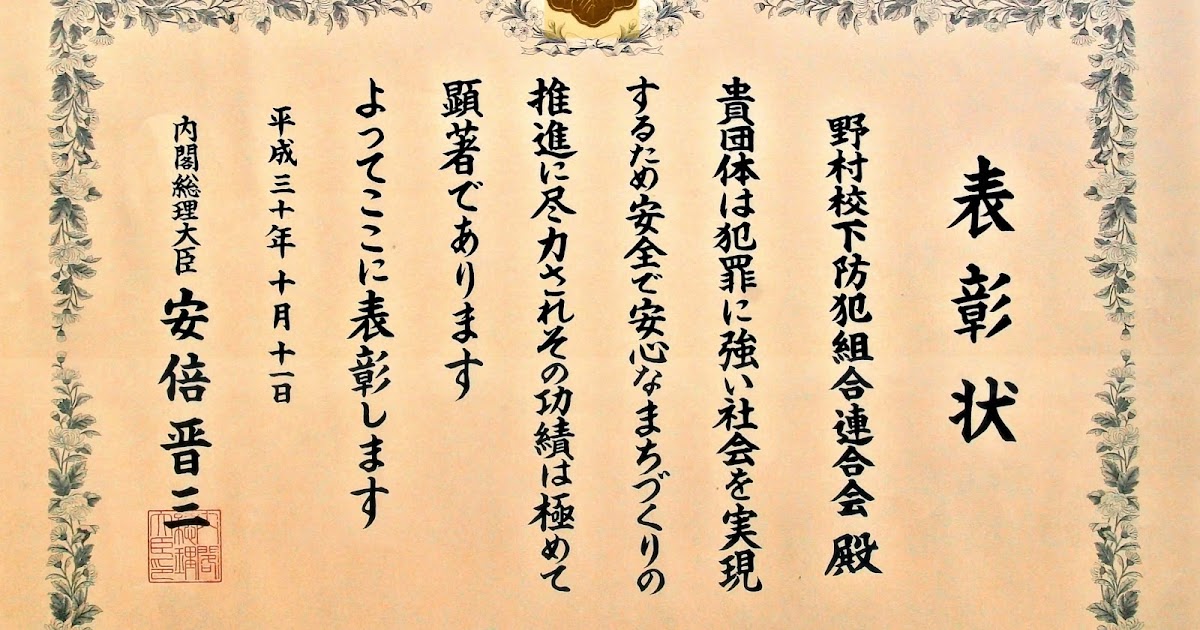 表彰状
野村校下防犯組合連合会 殿
貴団体は犯罪に強い社会を実現
するため安全で安心なまちづくりの
推進に尽力されその功績は極めて
顕著であります
よってここに表彰します
平成三十年 十月 十一日
内閣総理大臣 安倍晋三
内閣総理大臣印